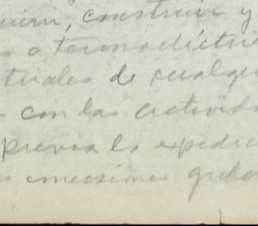 uirir, construir y
s o termoeléctric
turales de cualqui
s con las actividad
previa la expedic
s concesiones gube